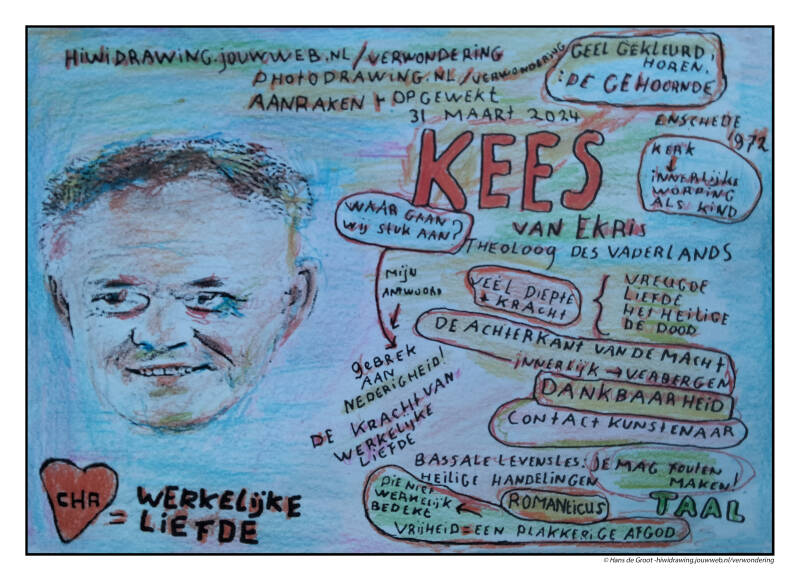 HiWiDRAWING.JOUWWEB.NL/VERWONDERING
PHOTODRAWING.NL/VERWONDERING
AANRAKEN + OPGEWEKT
31 MAART 2024
GEEL GEKLEURD,
HOREN,
: DE GEHOORNDE
ENSCHEDE
1972
KERK
INNERLIJKE
WORDING
ALS KIND
KEES
VAN EKRIS
THEOLOOG DES VADERLANDS
WAAR GAAN
WIJ STUK AAN?
MIJN
ANTWOORD
GEBREK
AAN
NEDERIGHEID!
DE KRACHT VAN
WERKELIJKE
LIEFDE
VEEL DIEPTE
+ KRACHT
VREUGDE
LIEFDE
HET HEILIGE
DE DOOD
DE ACHTERKANT VAN DE MACHT
INNERLIJK → VERBERGEN
DANKBAARHEID
CONTACT KUNSTENAAR
BASSALE LEVENSLES: JE MAG FOUTEN
MAKEN!
HEILIGE HANDELINGEN
DIE NIET
WERKELIJK
BEDEKT
ROMANTICUS
TAAL
VRIJHEID = EEN PLAKKERIGE AFGOD
CHR
= WERKELIJKE
LIEFDE
© Hans de Groot -hiwidrawing.jouwweb.nl/verwondering